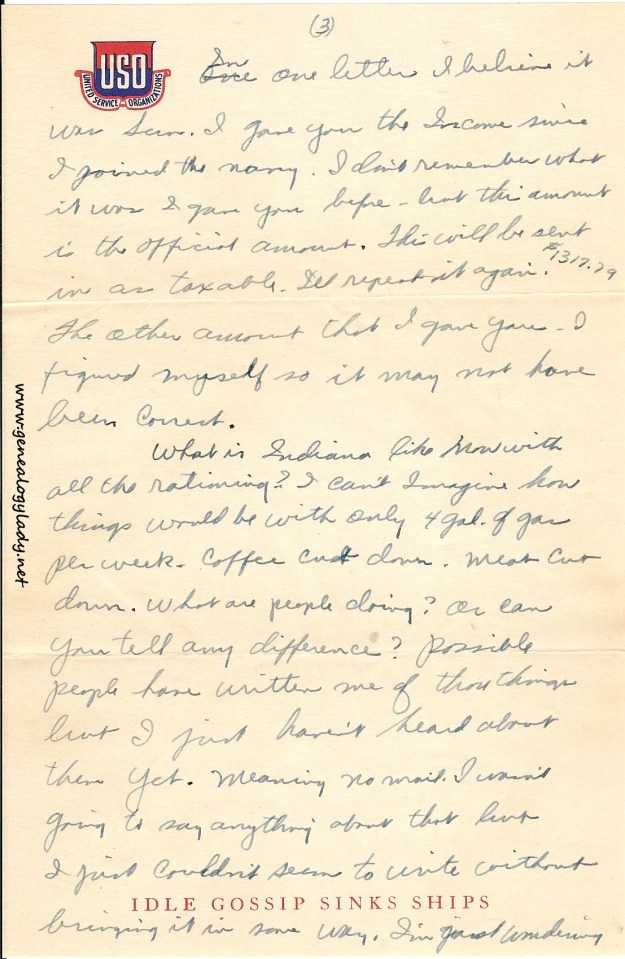 (3)
USO
UNITED SERVICE ORGANIZATIONS
In one letter I believe it
was Sun. I gave you the Income since
I joined the navy. I don't remember what
it was I gave you before - but this amount
is the official amount. This will be sent
in as taxable. I'll repeat it again. $1317.79
The other amount that I gave you - I
figured myself so it may not have
been correct.
What is Indiana like now with
all the rationing? I can't Imagine how
things would be with only 4 gal. of gas
per week. Coffee cut down. Meat cut
down. What are people doing? Or can
you tell any difference? Possible
people have written me of those things
but I just haven't heard about
them yet. Meaning no mail. I wasn't
going to say anything about that but
I just couldn't seem to write without
IDLE GOSSIP SINKS SHIPS
bringing it in some way. I'm just wondering
www.genealogylady.net